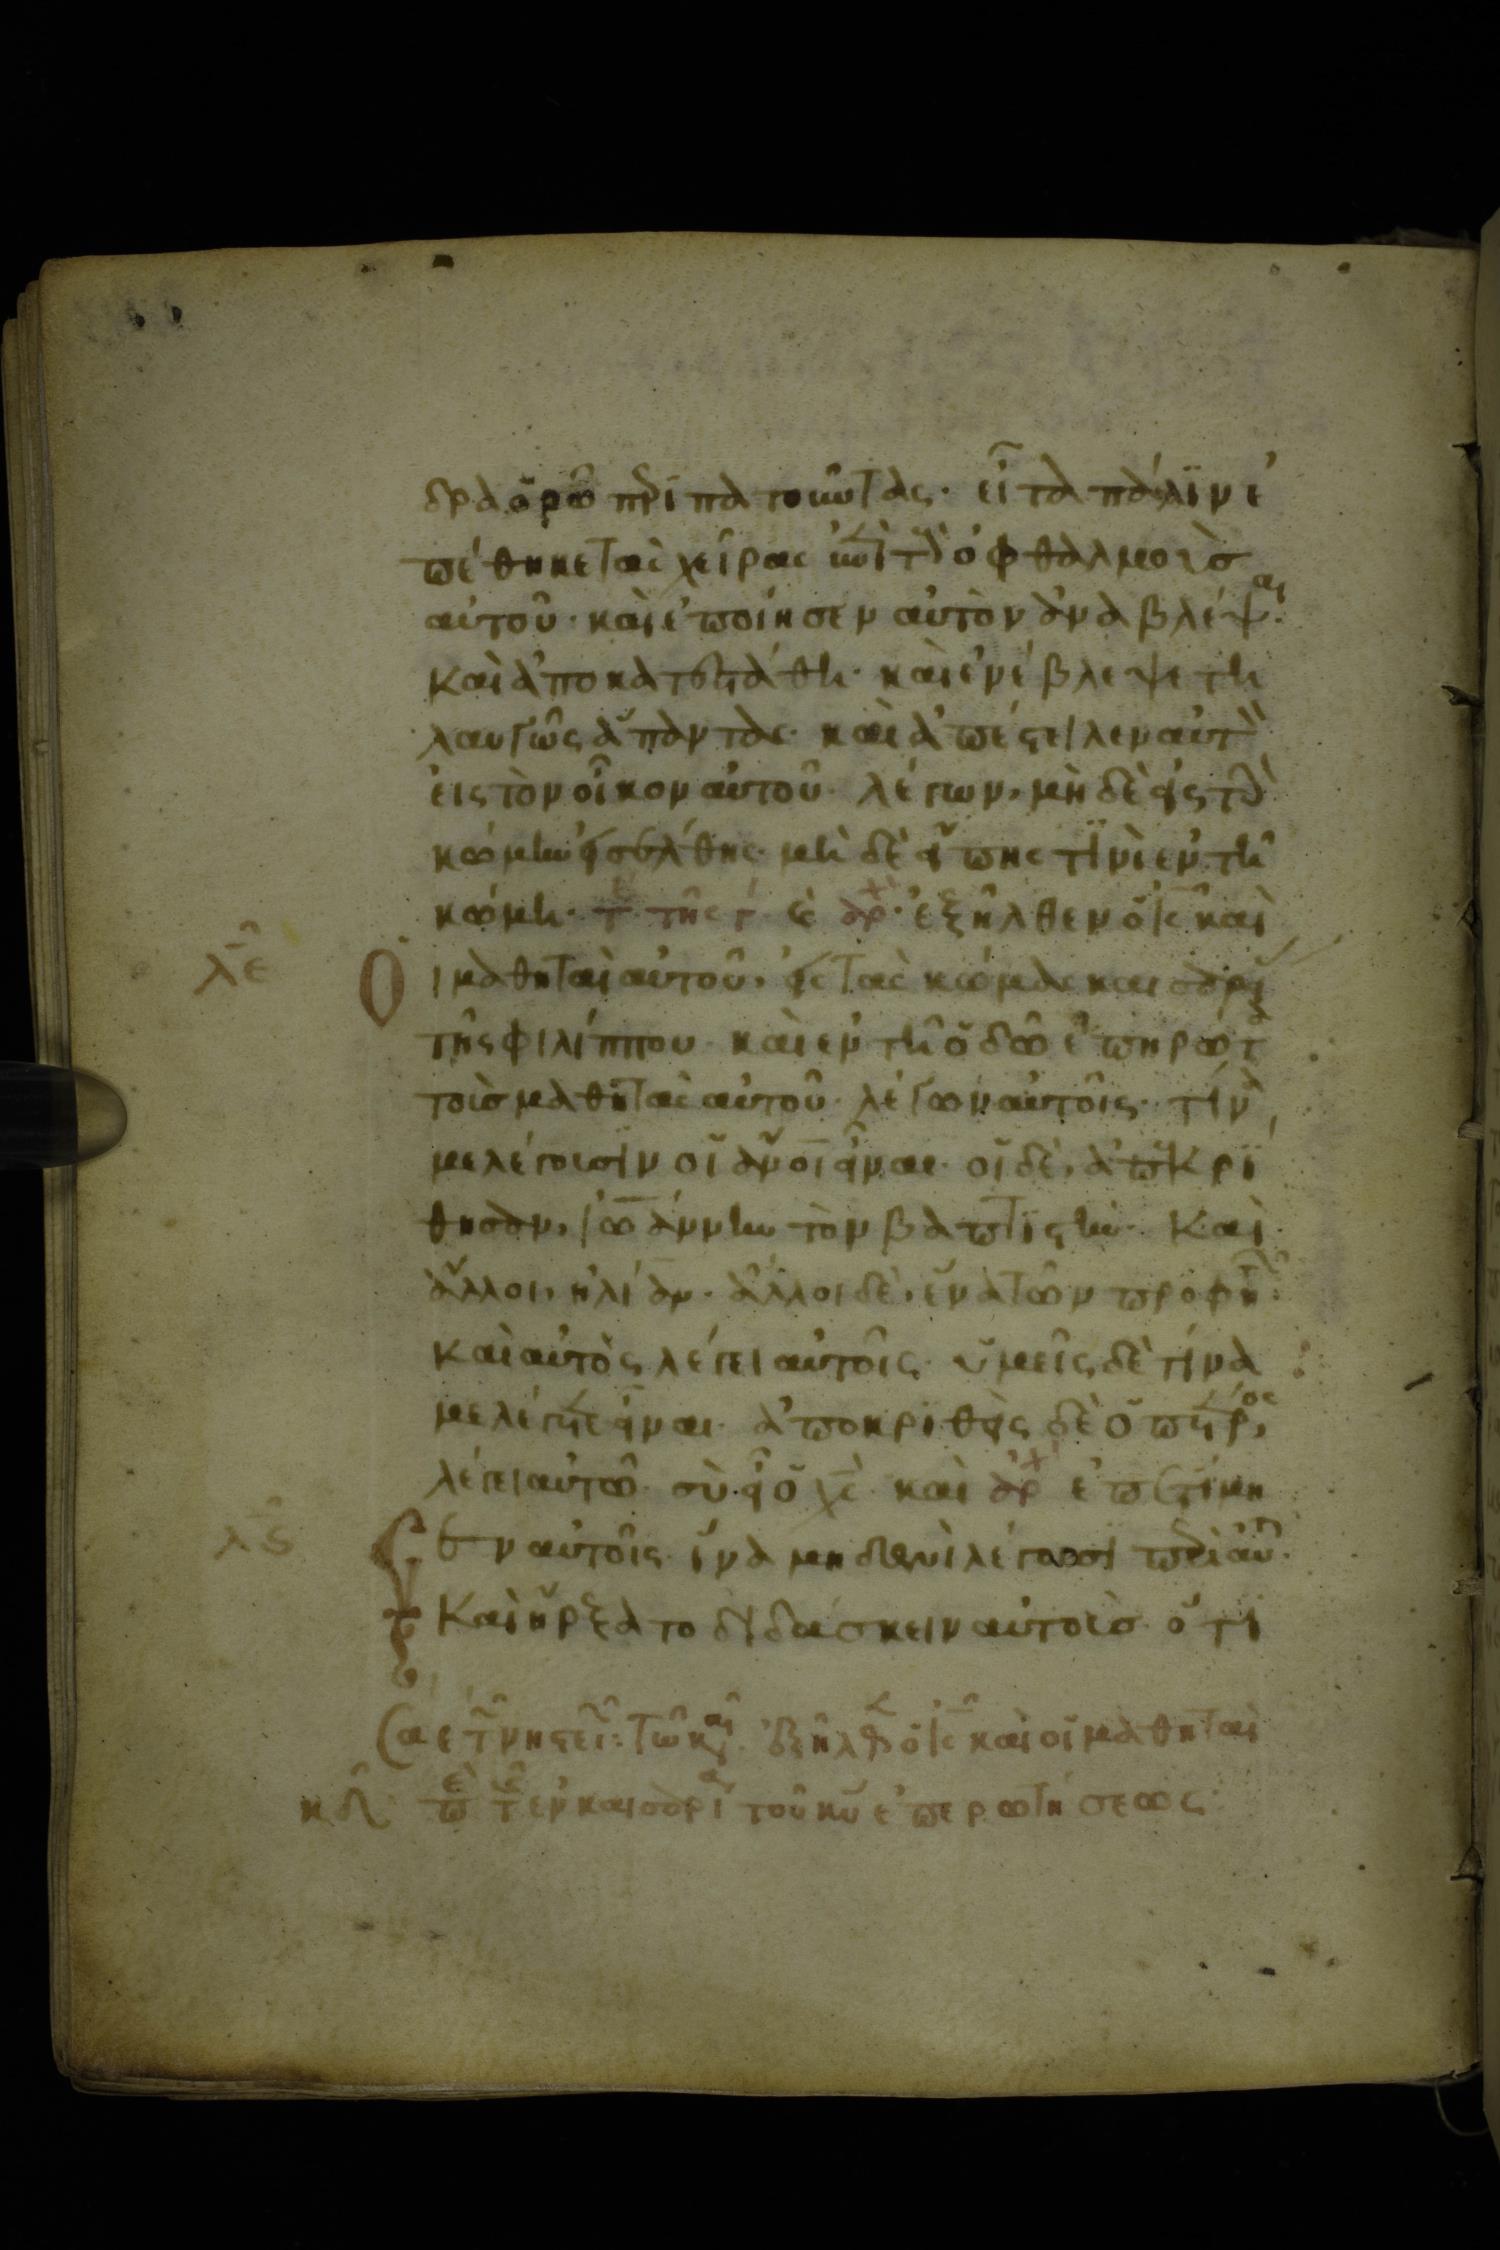 δρα ὁρῶ περιπατοῦντας· εἶτα πάλιν ἐ
πέθηκε τὰς χεῖρας ἐπὶ τοὺς ὀφθαλμοὺσ
αὐτοῦ· καὶ ἐποίησεν αὐτὸν ἀναβλέψαι·
Καὶ ἀποκατεστάθη· καὶ ἐνέβλεψε τη
λαυγῶς ἅπαντας· καὶ ἀπέστειλεν αὐτὸν
εἰς τὸν οἶκον αὐτοῦ· λέγων, μὴ δὲ εἰς τὴν
κώμην εἰσέλθης· μὴ δὲ εἴπης τινὶ ἐν τῆ
κώμη· τέ τῆς γ· ἀρχ· ἐξῆλθεν ὁ ις καὶ
λε Οἱ μαθηταὶ αὐτοῦ, εἰς τὰς κώμας καισαρεί
τῆς φιλίππου· καὶ ἐν τῆ ὁδῶ ἐπηρώτα
τοὺσ μαθητὰς αὐτοῦ· λέγων αὐτοῖς· τίνα
με λέγουσιν οἱ ἀνοι εἶναι· οἱ δὲ, ἀπεκρί
θησαν, ἰωάννην τὸν βαπτιστήν· Καὶ
ἄλλοι, ἠλίαν· ἄλλοι δὲ, ἕνα τῶν προφητῶν·
καὶ αὐτὸς λέγει αὐτοῖς· ὑμεῖς δὲ τίνα
με λέγετε εἶναι· ἀποκριθεὶς δὲ ὁ πέτρος,
λέγει αὐτῶ· σὺ εἶ ὁ χς· καὶ ἀρχ ἐπετίμη
λς Εσεν αὐτοῖς· ἵνα μηδενὶ λέγωσι περὶ αὐτοῦ·
Καὶ ἤρξατο διδάσκειν αὐτοὺσ ὅτι
τῆς νηστει: τῶ καιρ· ἐξῆλθεν ὁ ις καὶ οἱ μαθηταὶ
κδ πε τῆς ἐν καισαρεία τοῦ κυ ἐπερωτήσεως·